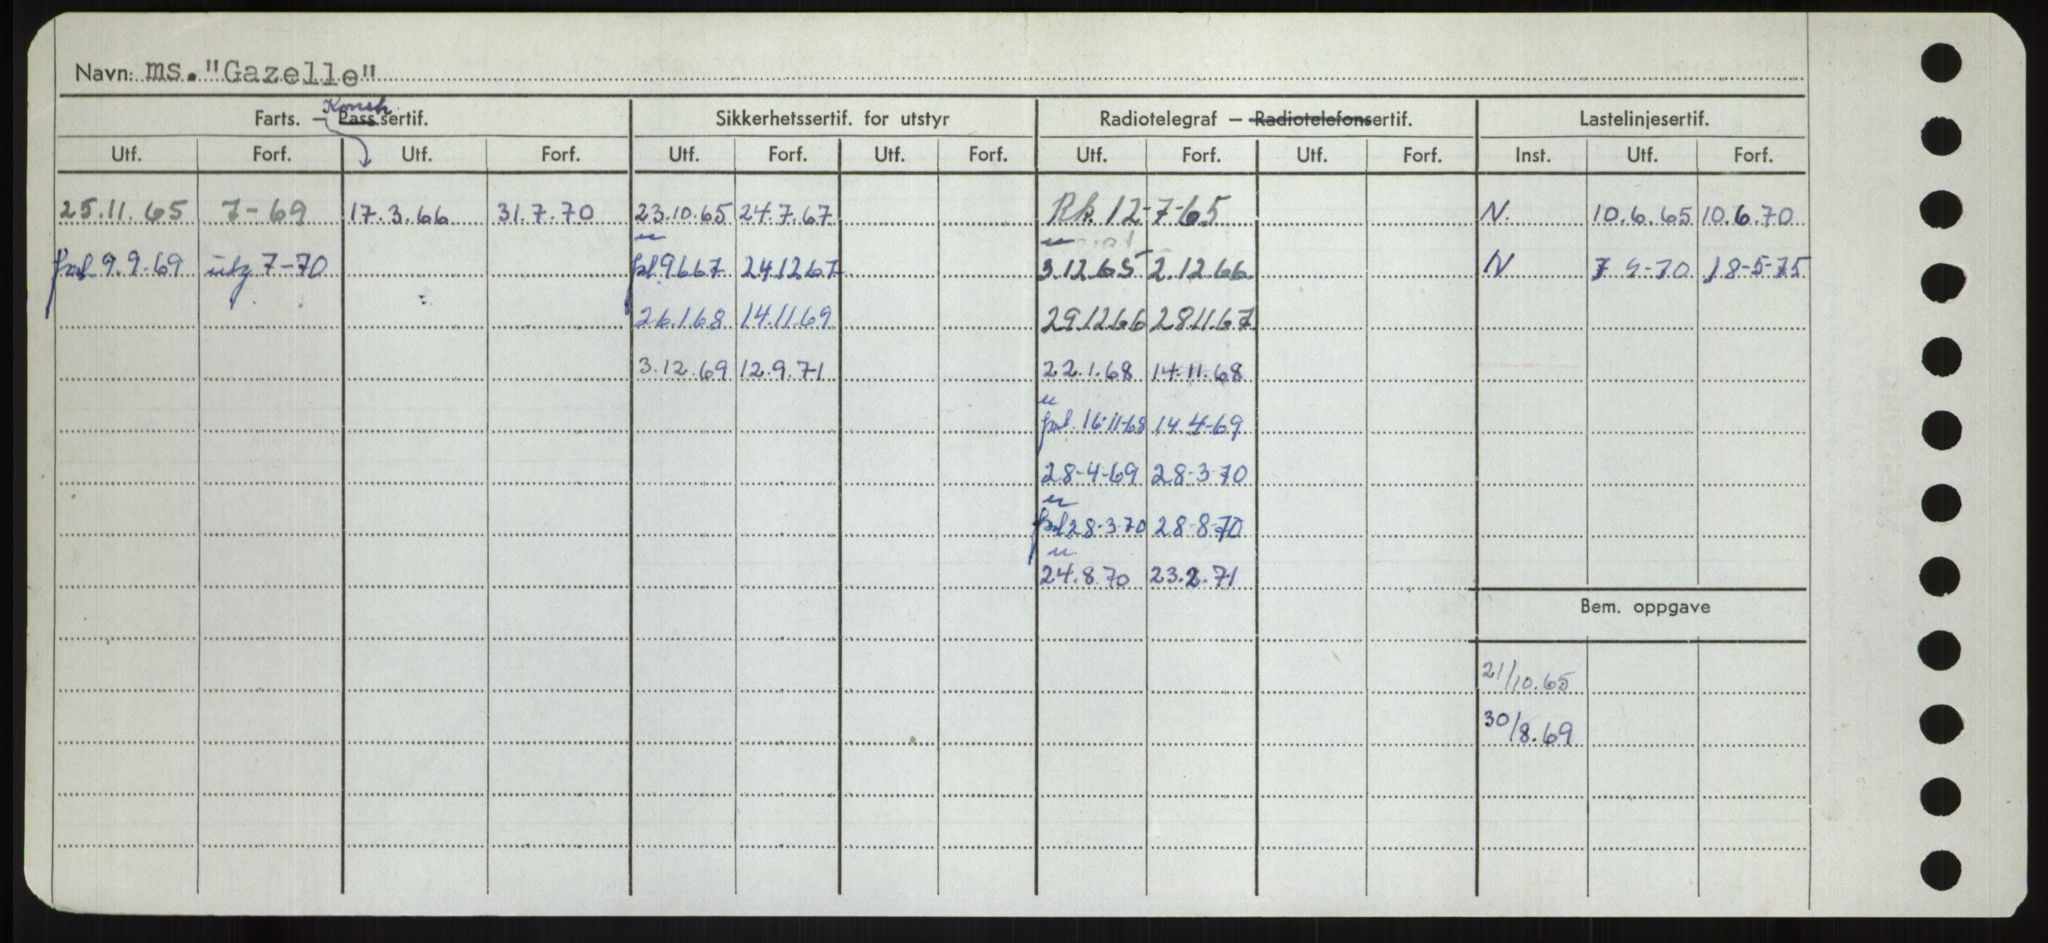 Navn: ms. "Gazelle"
Konstr.
Farts. — Pass sertif. Sikkerhetssertif. for utstyr Radiotelegraf — Radiotelefonsertif. Lastelinjesertif.
Utf. Forf. Utf. Forf. Utf. Forf. Utf. Forf. Utf. Forf. Utf. Forf. Inst. Utf. Forf.
25.11.65 7-69 17.3.66 31.7.70 23.10.65 24.7.67 Rk. 12-7-65 N. 10.6.65 10.6.70
u u
9.9.69 utg 7-70 9667 241267 3.12.65 2.12.66 N -70 18-5-75
26.1.68 14.11.69 29.12.66 28.11.67
3.12.69 12.9.71 22.1.68 14.11.68
u
16-11-68 14.4-69
28-4-69 28-3-70
u
28-3-70 28-8-70
u
24.8.70 23.2.71
Bem. oppgave
21/10.65
30/8.69